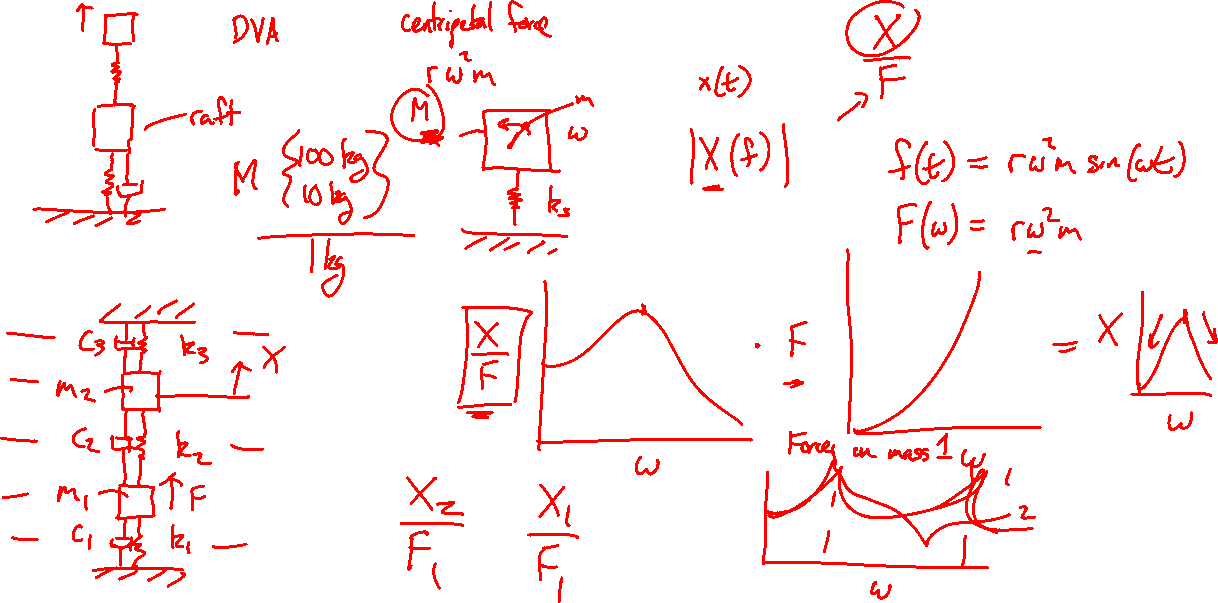 DVA
raft
centripetal force
rω²m
M
m
ω
k₃
M {100 kg
10 kg}
1 kg
x(t)
|X(f)|
X
F
f(t) = rω²m sin(ωt)
F(ω) = rω²m
C₃
k₃
X
m₂
C₂
k₂
m₁
F
C₁
k₁
X
F
ω
· F
ω
= X
ω
X₂
F₁
X₁
F₁
Force on mass 1
1
2
ω